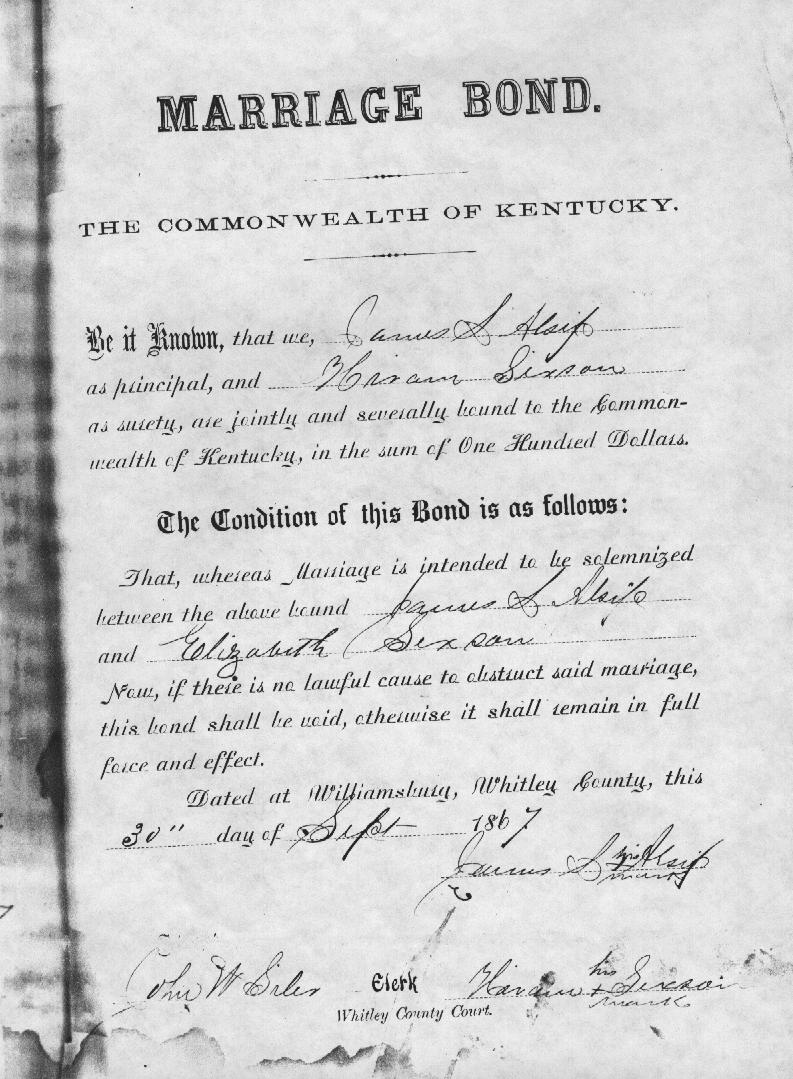 MARRIAGE BOND.
THE COMMONWEALTH OF KENTUCKY.
Be it Known, that we, James S Alsip
as principal, and Hiram Sexson
as surety, are jointly and severally bound to the Common-
wealth of Kentucky, in the sum of One Hundred Dollars.
The Condition of this Bond is as follows:
That, whereas Marriage is intended to be solemnized
between the above bound James S Alsip
and Elizabeth Sexson
Now, if there is no lawful cause to obstruct said marriage,
this bond shall be void, otherwise it shall remain in full
force and effect.
Dated at Williamsburg, Whitley County, this
30" day of Sept 1867
James S his Alsip
mark
John W Siler Clerk Hiram his + Sexson
mark
Whitley County Court.